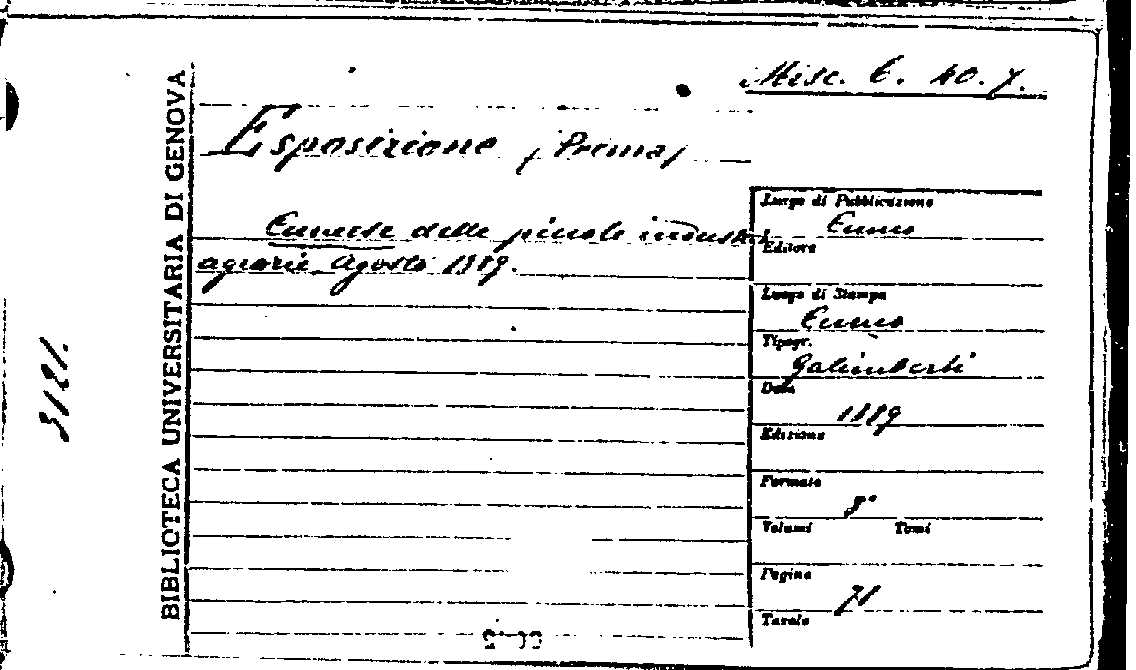 Misc. E. 40.7.
Esposizione (Prima)
Cuneese delle piccole industrie
agrarie, Agosto 1889.
BIBLIOTECA UNIVERSITARIA DI GENOVA
3121.
Luogo di Pubblicazione
Cuneo
Editore
Luogo di Stampa
Cuneo
Tipogr.
Galimberti
Data
1889
Edizione
Formato
8°
Volumi Tomi
Pagine
71
Tavole